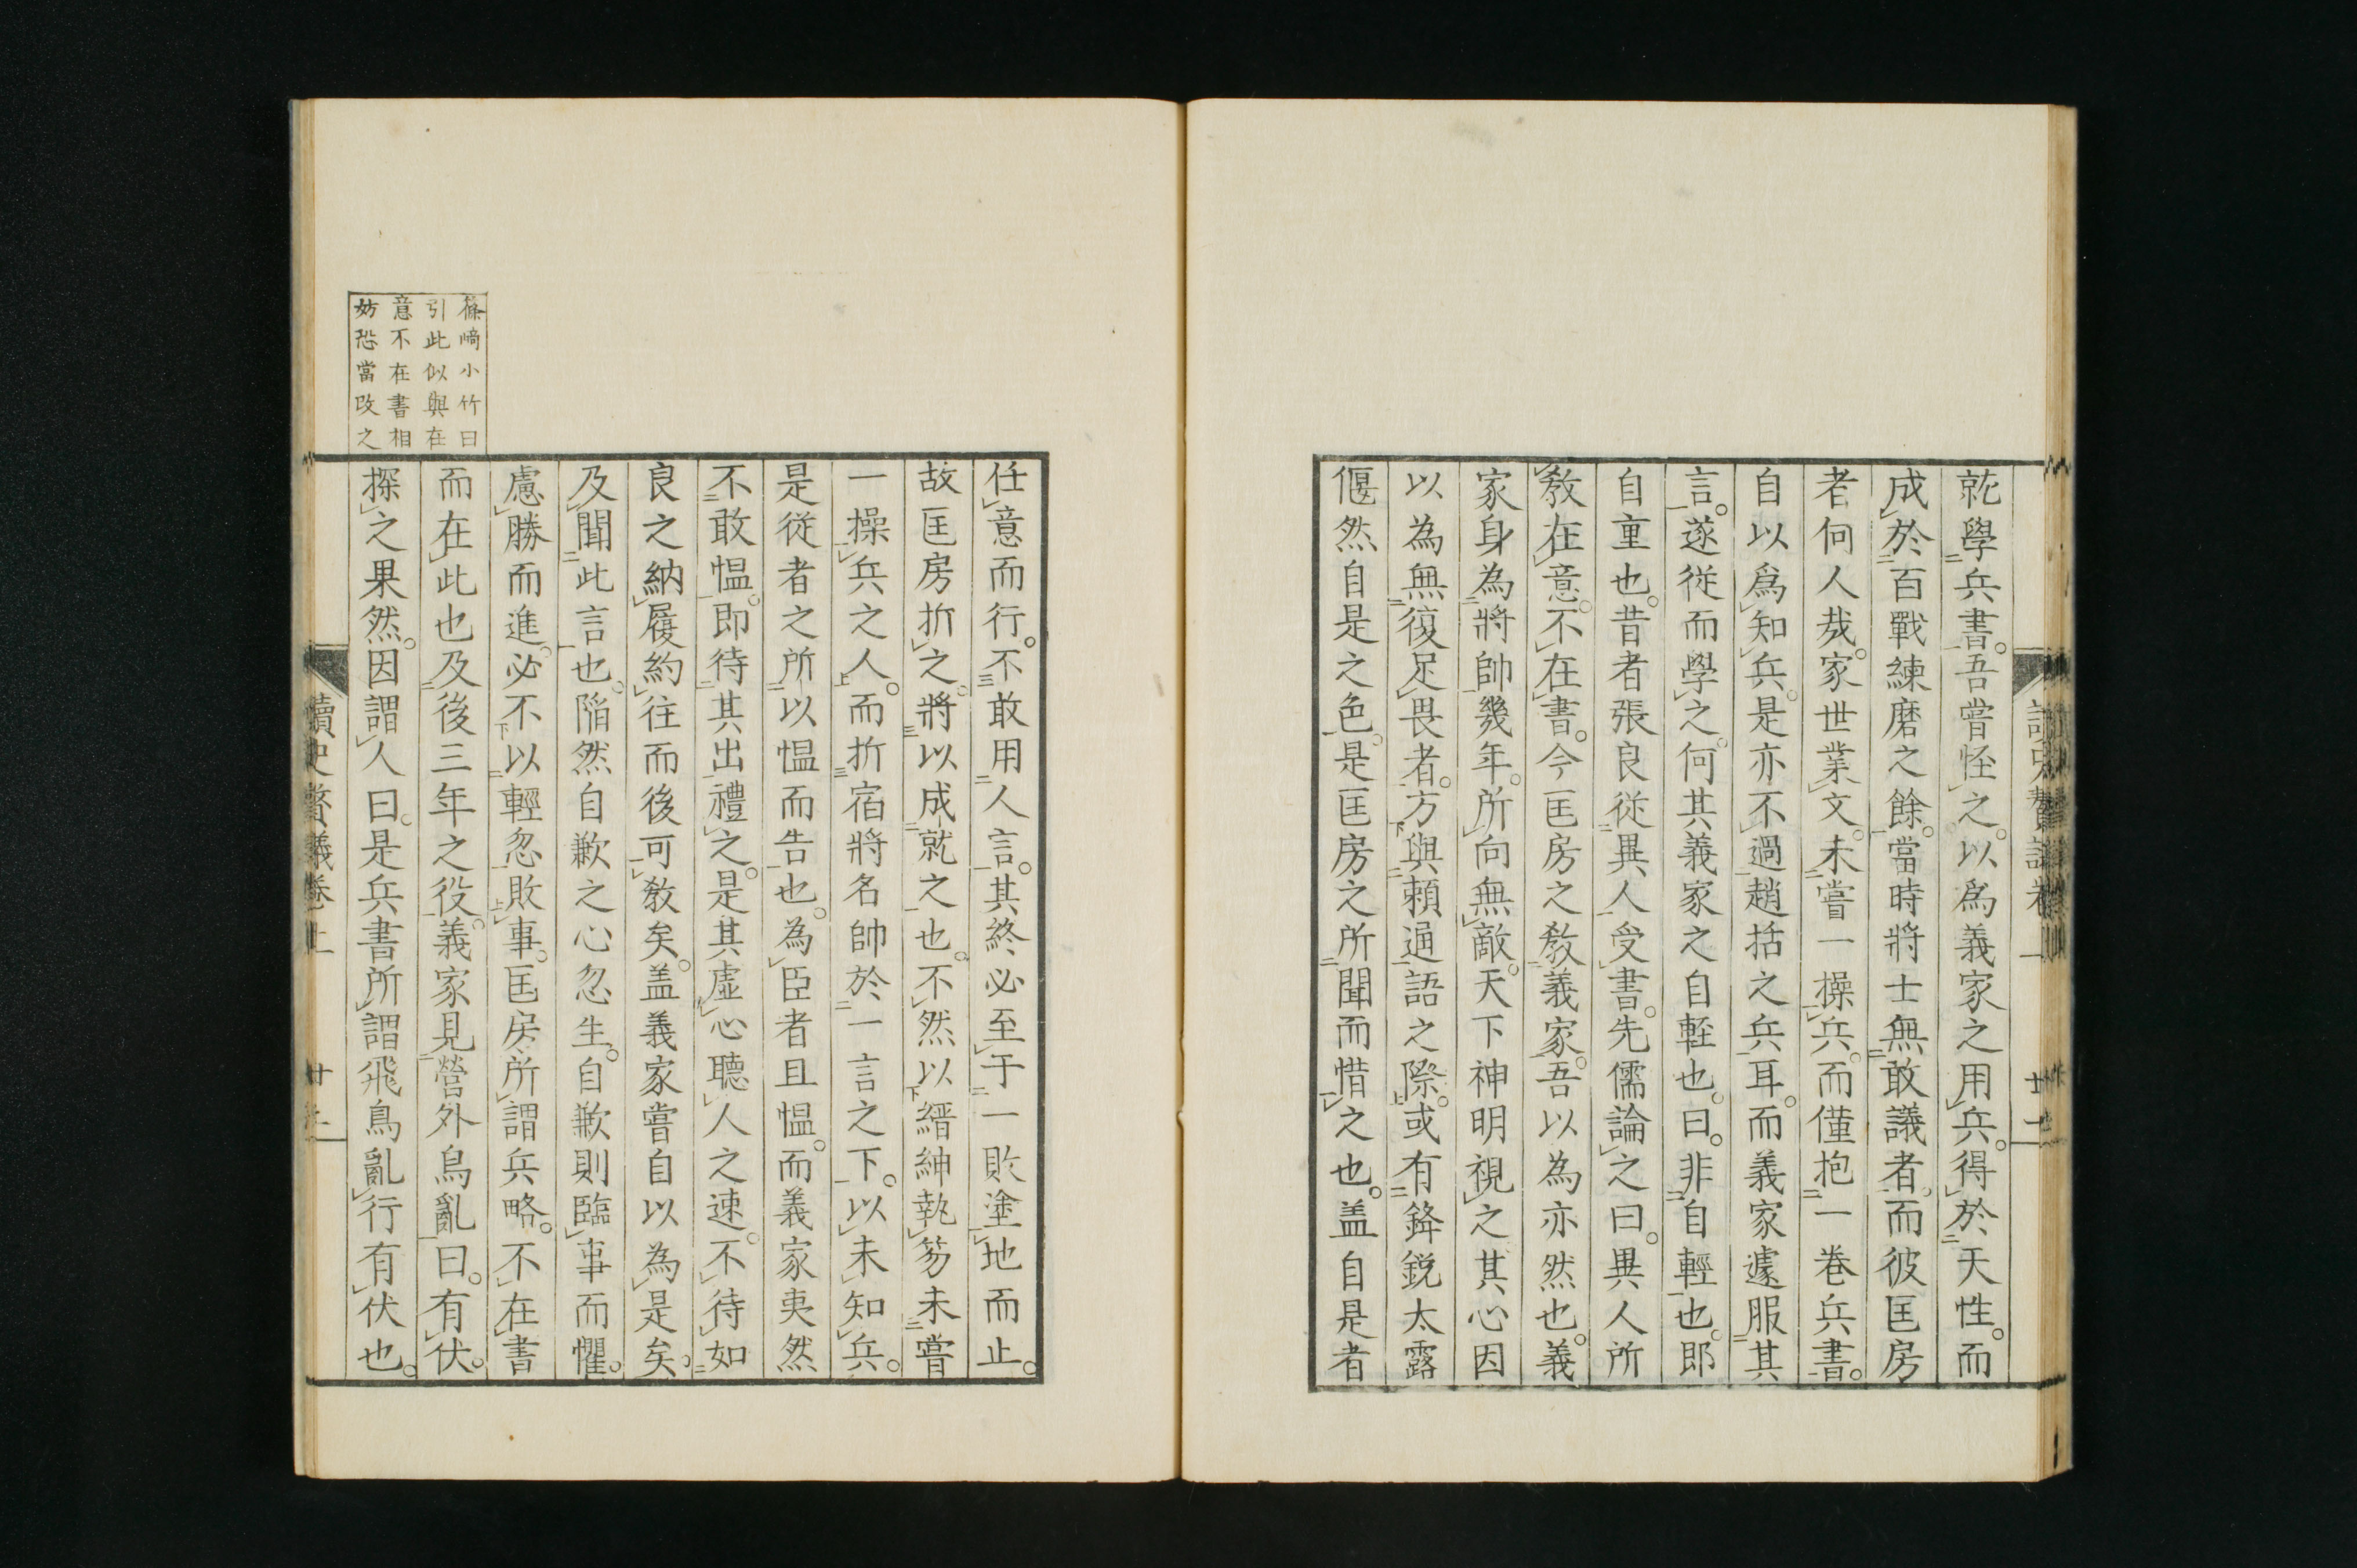 就學兵書。吾嘗怪之。以爲義家之用兵。得於天性。而
成於百戰練磨之餘。當時將士無敢議者。而彼匡房
者何人哉。家世業文。未嘗一操兵。而僅抱一巻兵書。
自以爲知兵。是亦不過趙括之兵耳。而義家遽服其
言。遂從而學之。何其義家之自輊也。曰。非自輕也。即
自重也。昔者張良從異人受書。先儒論之曰。異人所
教在意。不在書。今匡房之教義家。吾以為亦然也。義
家身為將帥幾年。所向無敵。天下神明視之。其心因
以為無復足畏者。方與賴通語之際。或有鋒銳太露
偃然自是之色。是匡房之所聞而惜之也。盖自是者
任意而行。不敢用人言。其終必至于一敗塗地而止。
故匡房折之。將以成就之也。不然以縉紳執笏未嘗
一操兵之人。而折宿將名帥於一言之下。以未知兵。
是從者之所以慍而告也。為臣者且慍。而義家夷然
不敢慍。即待其出禮之。是其虛心聽人之速。不待如
良之納履約往而後可教矣。盖義家嘗自以為是矣。
及聞此言也。陷然自歉之心忽生。自歉則臨事而懼。
慮勝而進。必不以輕忽敗事。匡房所謂兵略。不在書
而在此也及後三年之役。義家見營外鳥亂曰。有伏。
探之果然。因謂人曰。是兵書所謂飛鳥亂行有伏也。
篠崎小竹曰
引此似與在
意不在書相
妨恐當改之
讀史贅議卷上